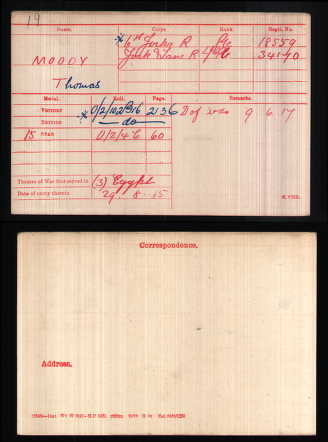 19
Name. Corps. Rank. Regtl. No.
* 6th Yorks R Pte 18559
MOODY York & Lanc R Pte 34190
Thomas
Medal. Roll. Page. Remarks.
VICTORY * O/2/102B16 2136 D of W 9.6.17
BRITISH do
15 STAR O/2/4C 60
Theatre of War first served in (3) Egypt
Date of entry therein 29. 8. 15
Correspondence.
Address.